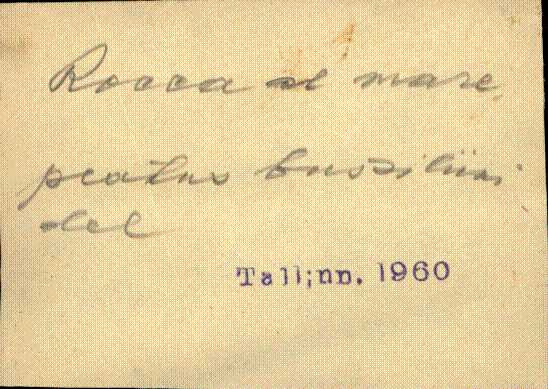 Rocca al mare,
peatus bussiliini
del
Tallinn. 1960